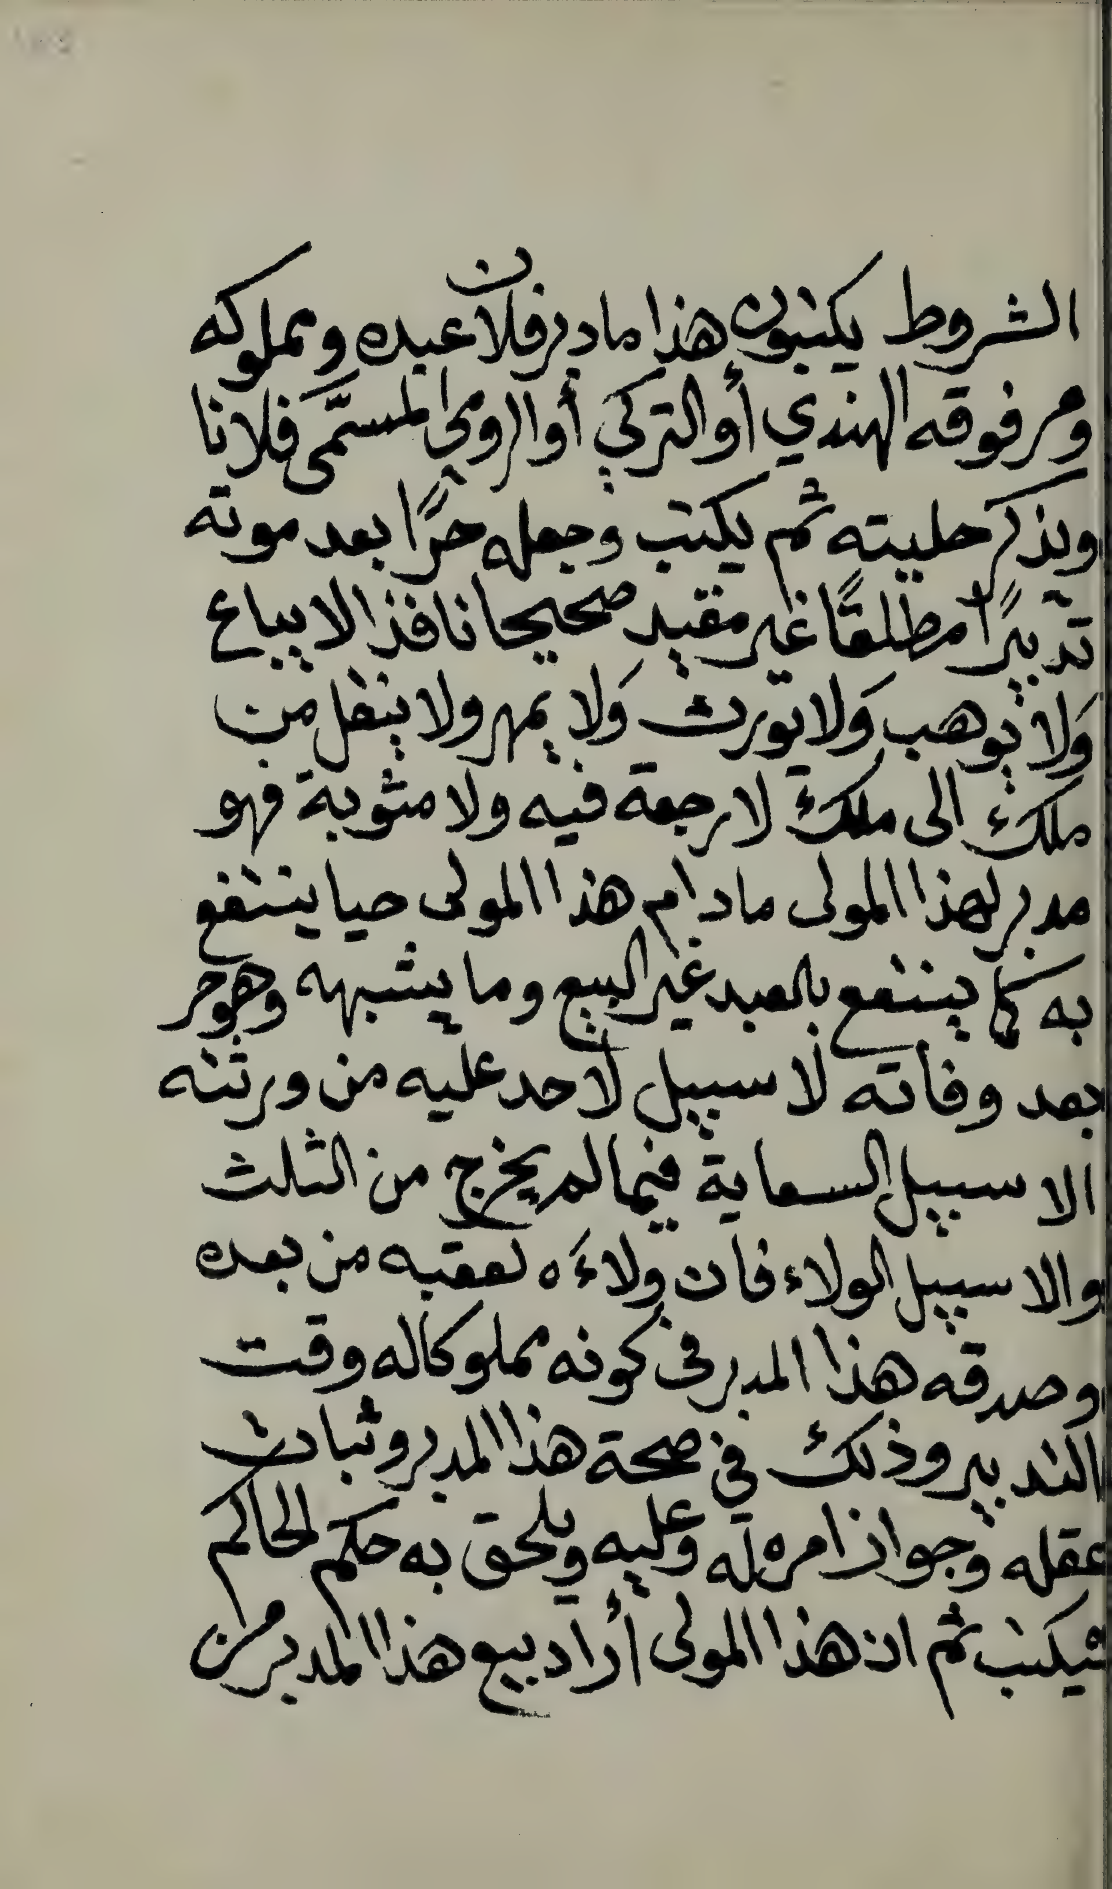 الشروط يكتبون هذا ما دبر فلان عبده ومملوكه
ومرفوقه الهندي أو التركي أو الرومي المسمّى فلانا
ويذكر حليته ثم يكتب وجعله حرًا بعد موته
تدبيرًا مطلقًا غير مقيد صحيحا نافذا لا يباع
وَلا يوهب وَلا يورث وَلا يمهر ولا ينقل من
ملك الى ملك لا رجعة فيه ولا مثوبة فهو
مدبر لهذا المولى ما دام هذا المولى حيا ينتفع
به كما ينتفع بالعبد غير البيع وما يشبهه وهو حر
بعد وفاته لا سبيل لأحد عليه من ورثته
الا سبيل السعاية فيما لم يخرج من الثلث
والا سبيل الولاء فان ولاءَه لعقبه من بعده
وصدقه هذا المدبر في كونه مملوكا له وقت
التدبير وذلك في صحة هذا المدبر وثبات
عقله وجواز امره له وعليه ويلحق به حكم الحاكم
فيكتب ثم ان هذا المولى أراد بيع هذا المدبر من